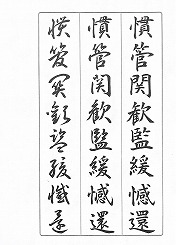 慣管関歓監緩憾還
慣管関歓監緩憾還
慣管関歓監緩憾還